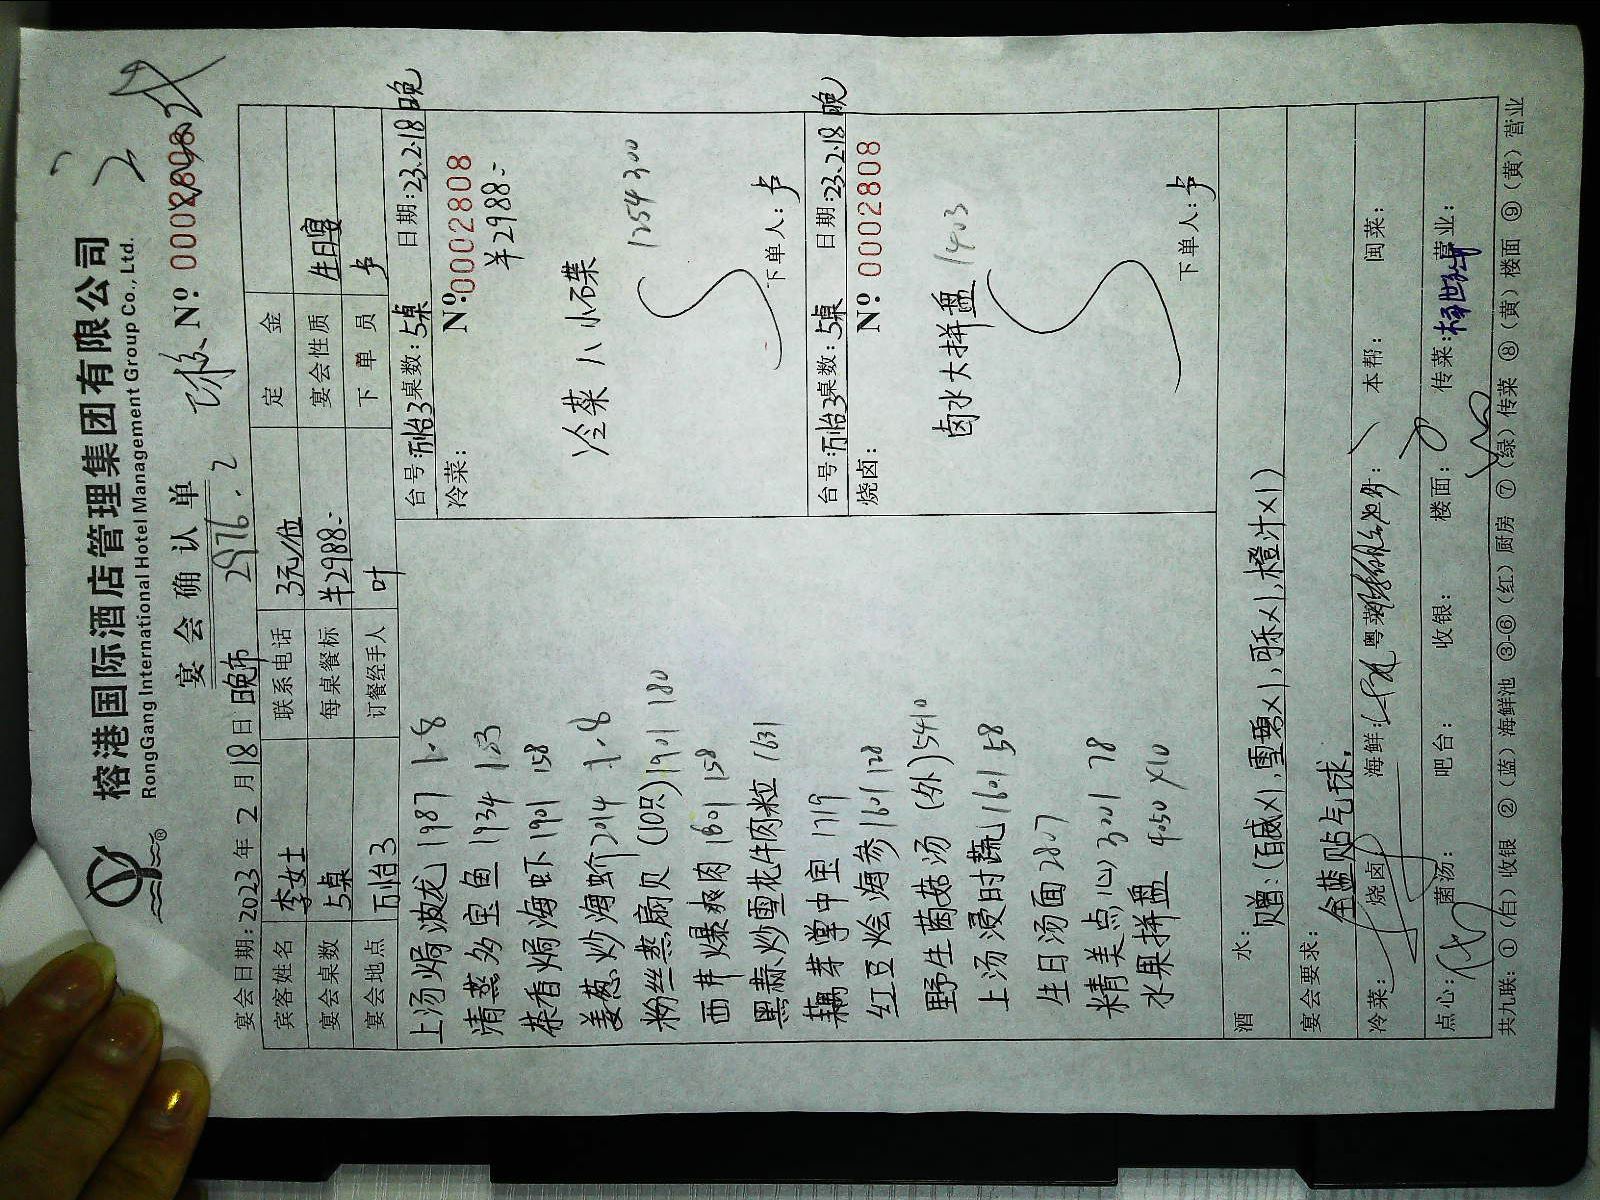 榕港国际酒店管理集团有限公司
RongGang International Hotel Management Group Co., Ltd.
®
宴会确认单
Nº: 0002808
2976.2
宴会日期: 2023 年 2 月 18 日 晚市
宾客姓名 李女士 联系电话 3元/位 定金
宴会桌数 5桌 每桌餐标 羊2988.- 宴会性质 生日宴
宴会地点 万怡3 订餐经手人 叶 下单员 卢
上汤焗波龙 1987
清蒸多宝鱼 1934
茶香焗海虾 1901 158
姜葱炒海蚧 2014
粉丝蒸扇贝 (10只) 1901 180
西芹爆爽肉 1601 158
黑蒜炒雪花牛肉粒 1631
藕芽掌中宝 1719
红豆烩海参 1601 128
野生菌菇汤 (外) 5410
上汤浸时蔬 1601 58
生日汤面 2807
精美点心 3001 78
水果拼盘 4050 X10
台号: 万怡3 桌数: 5桌 日期: 23.2.18 晚
冷菜: Nº: 0002808
羊2988.-
冷菜八小碟 1254 300
下单人: 卢
台号: 万怡3 桌数: 5桌 日期: 23.2.18 晚
烧卤: Nº: 0002808
卤水大拼盘 1403
下单人: 卢
酒水:
贈: (百威X1, 雪碧X1, 可乐X1, 橙汁X1)
宴会要求:
全蓝贴气球.
冷菜: 烧卤: 海鲜: 粤菜: 本帮: 闽菜:
点心: 菌汤: 吧台: 收银: 楼面: 传菜: 营业:
共九联: ①(白)收银 ②(蓝)海鲜池 ③-⑥(红)厨房 ⑦(绿)传菜 ⑧(黄)楼面 ⑨(黄)营业